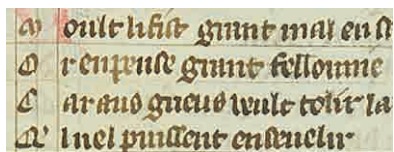 M oult li fist grant mal en
O r enpense grant felounie
C ar aus gueus veult tolir la
Q' l nel puissent enseuelir